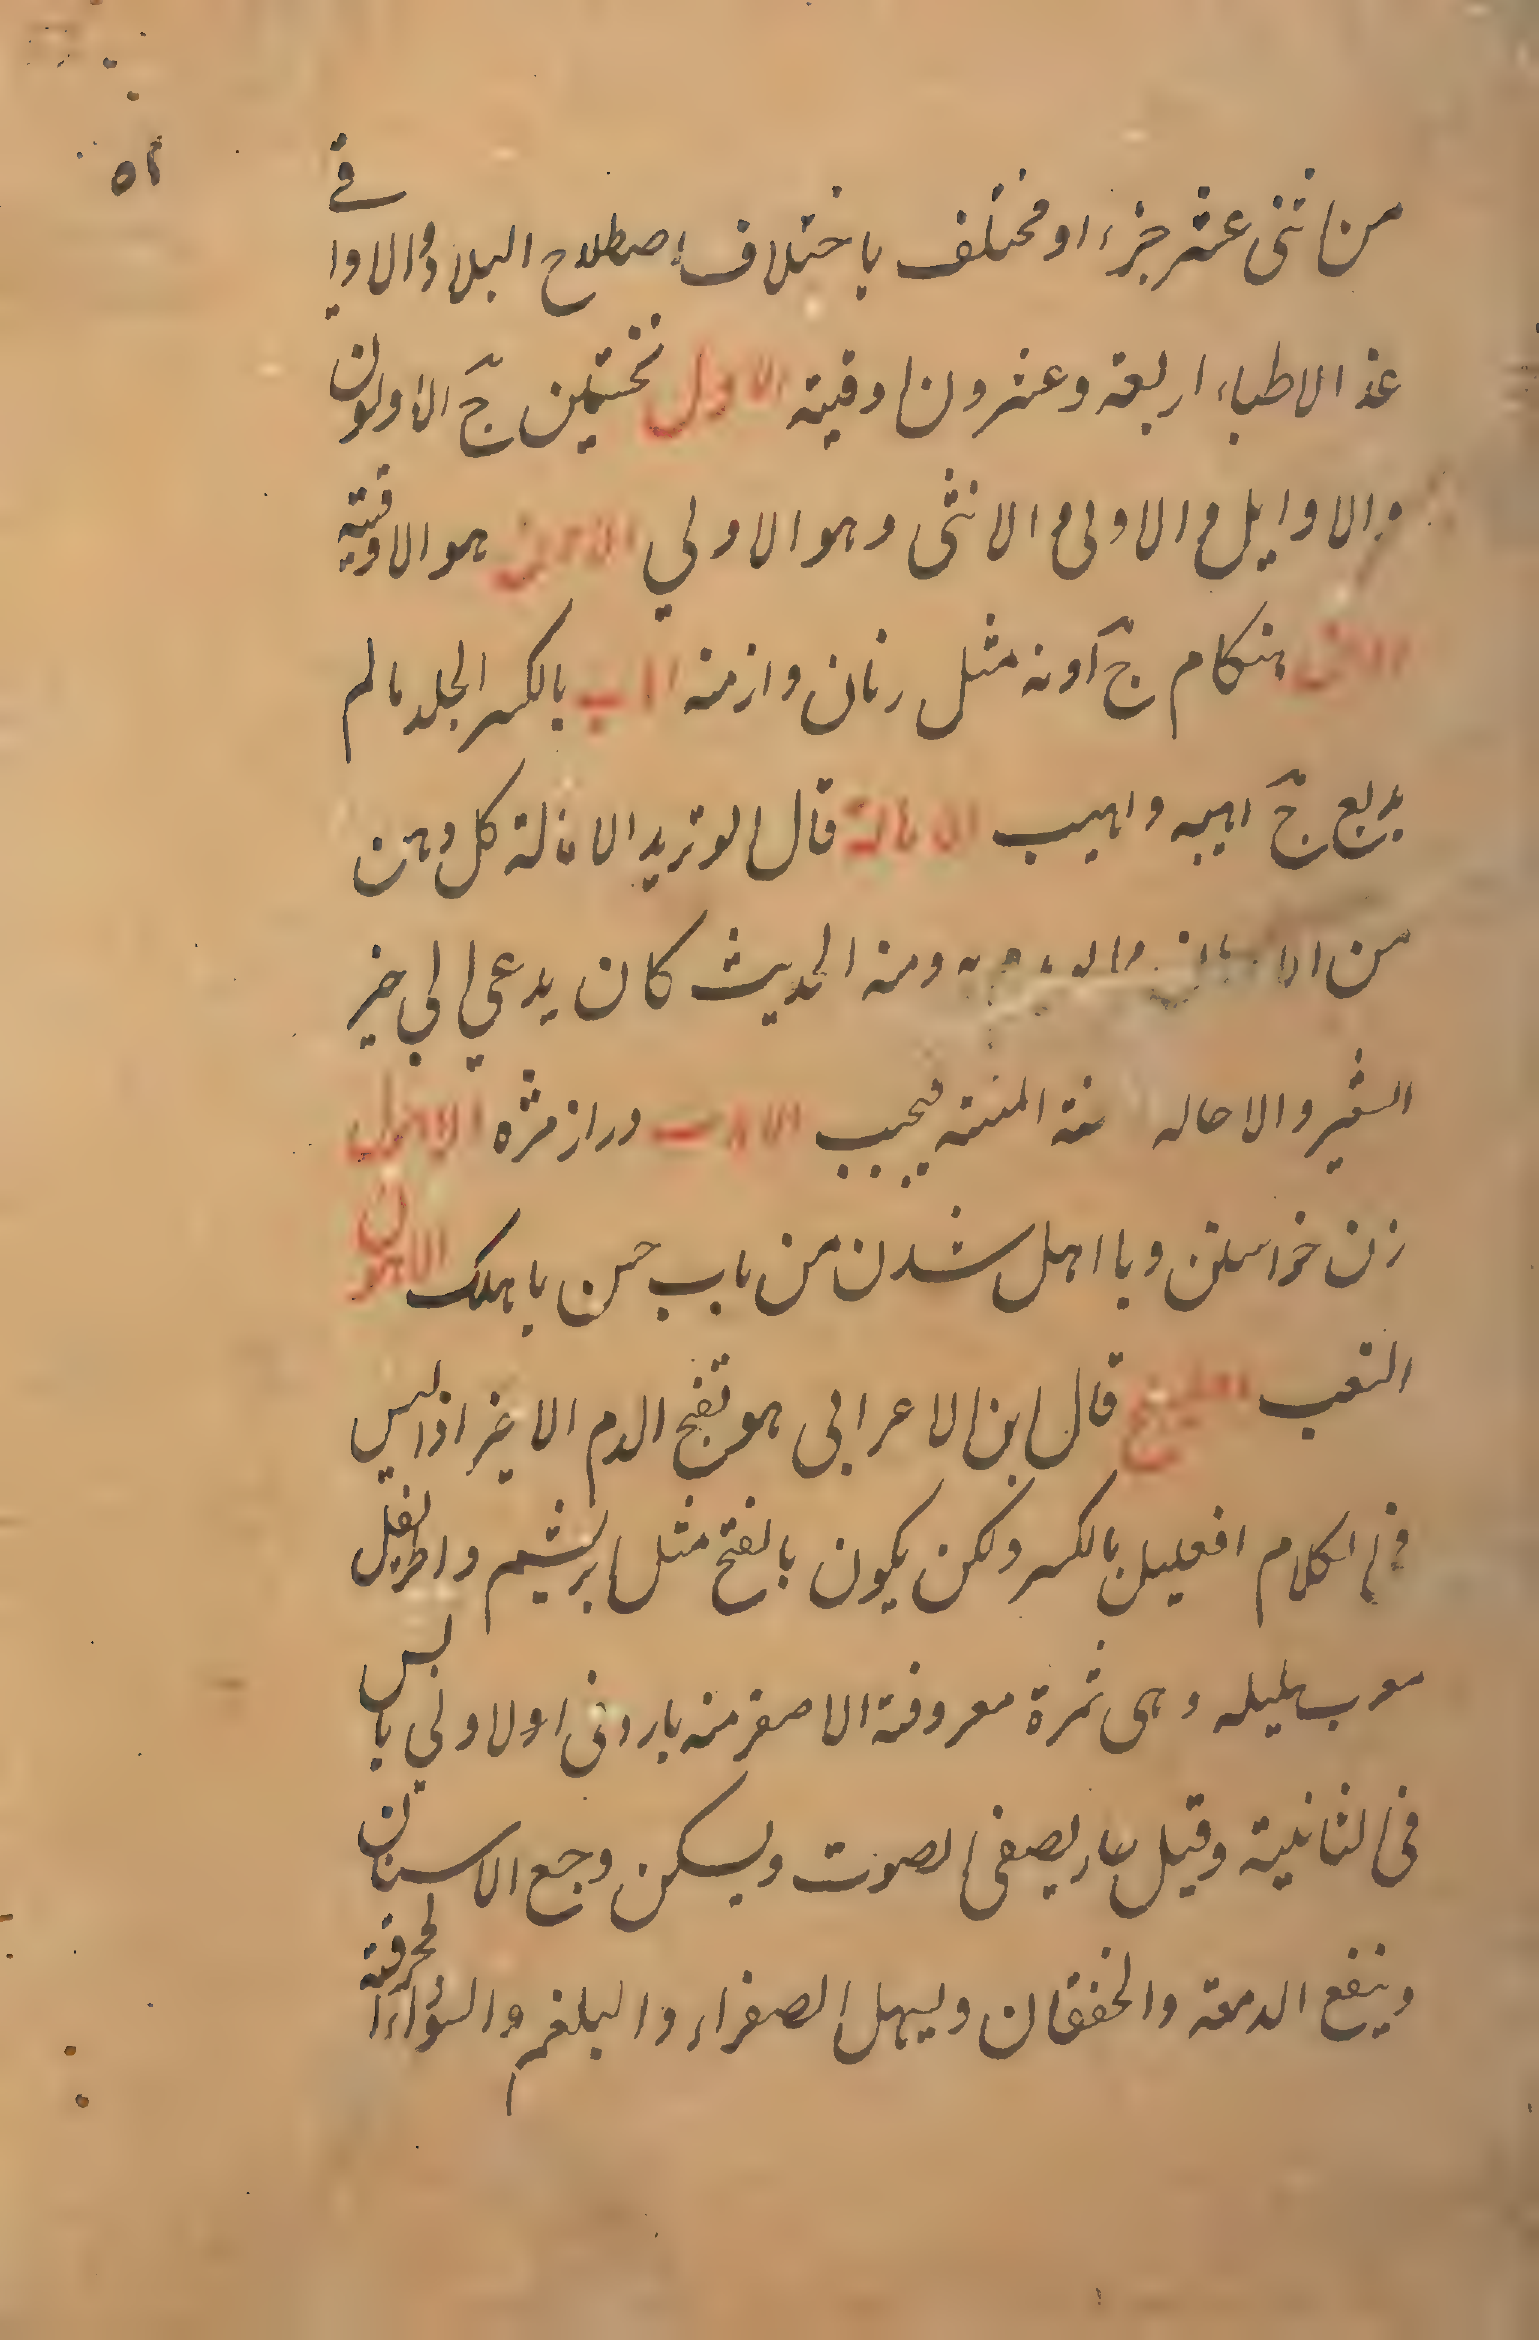 ٥٢
من اثنى عشر جزء او مختلف باختلاف اصطلاح البلاد والاواقى
عند الاطباء اربعة وعشرون اوقية الاول نخستين ج الاولون
والاوايل و الاولى و الانثى وهو الاولي هو الاوقية
الاوان هنكام ج آونه مثل زمان وازمنه الاهاب بالكسر الجلد مالم
يدبغ ج اهبه واهيب الاهالة قال ابو زيد الاهالة كل دهن
من ومنه الحديث كان يدعي الي خبز
الشعير والاهاله المنتنه فيجيب الاهدب دراز مژه الاهول
زن خواستن وبا اهل شدن من باب حسن باهلك
التعب قال ابن الاعرابى هو بفتح اللام الاخير اذ ليس
فى الكلام افعيلل بالكسر ولكن يكون بالفتح مثل ابريشم واطريفل
معرب هليله وهى ثمرة معروفة الاصفر منه بارد فى الاولى يابس
فى الثانية وقيل حار يصفى الصوت ويسكن وجع الاسنان
وينفع الدمعة والخفقان ويسهل الصفراء والبلغم والسوداء المحرقة